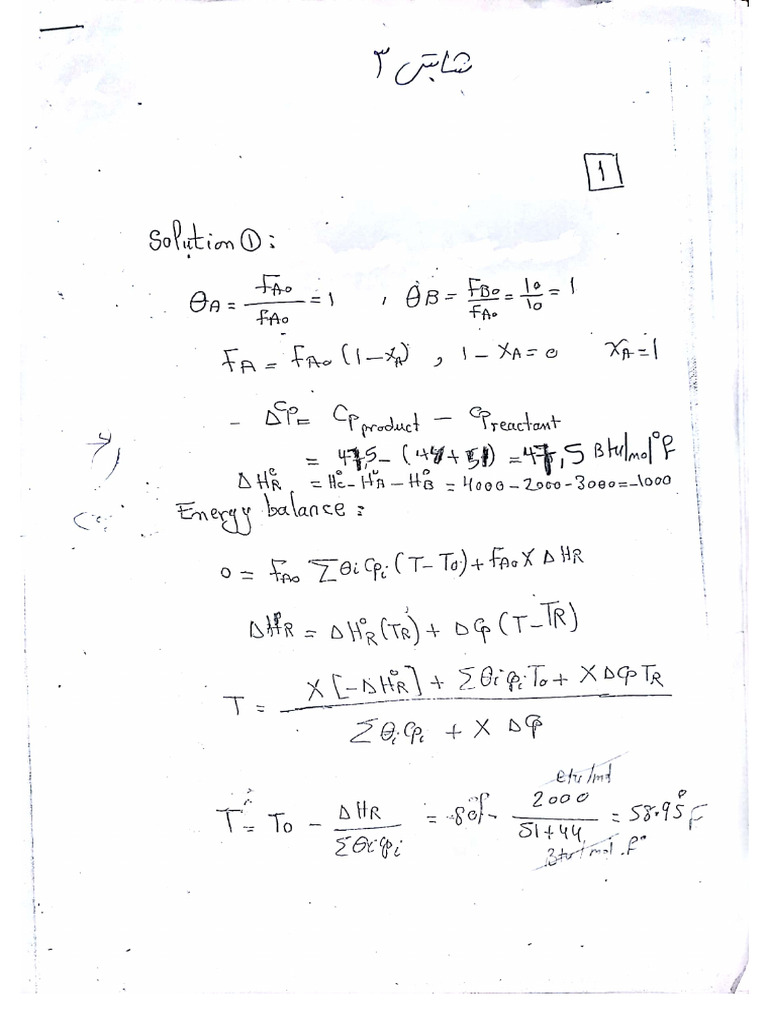 شابتر ٣
1
Solution ①:
θA = FA₀/FA₀ = 1 , θB = FB₀/FA₀ = 10/10 = 1
FA = FA₀ (1-XA) , 1-XA = 0 XA=1
- ΔCp = Cp product - Cp reactant
= 47,5 - (44+51) = 47,5 Btu/mol°F
ΔH°R = H°C - H°A - H°B = 4000-2000-3000=-1000
Energy balance:
0 = FA₀ Σθi Cpi (T-T₀) + FA₀ X ΔHR
ΔH°R = ΔH°R (TR) + ΔCp (T-TR)
T = X[-ΔH°R] + Σθi CpiT₀ + X ΔCp TR / Σθi Cpi + X ΔCp
T = T₀ - ΔHR/Σθi Cpi = 80°F - 2000 Btu/mol / 51+44 Btu/mol.F° = 58.95°F